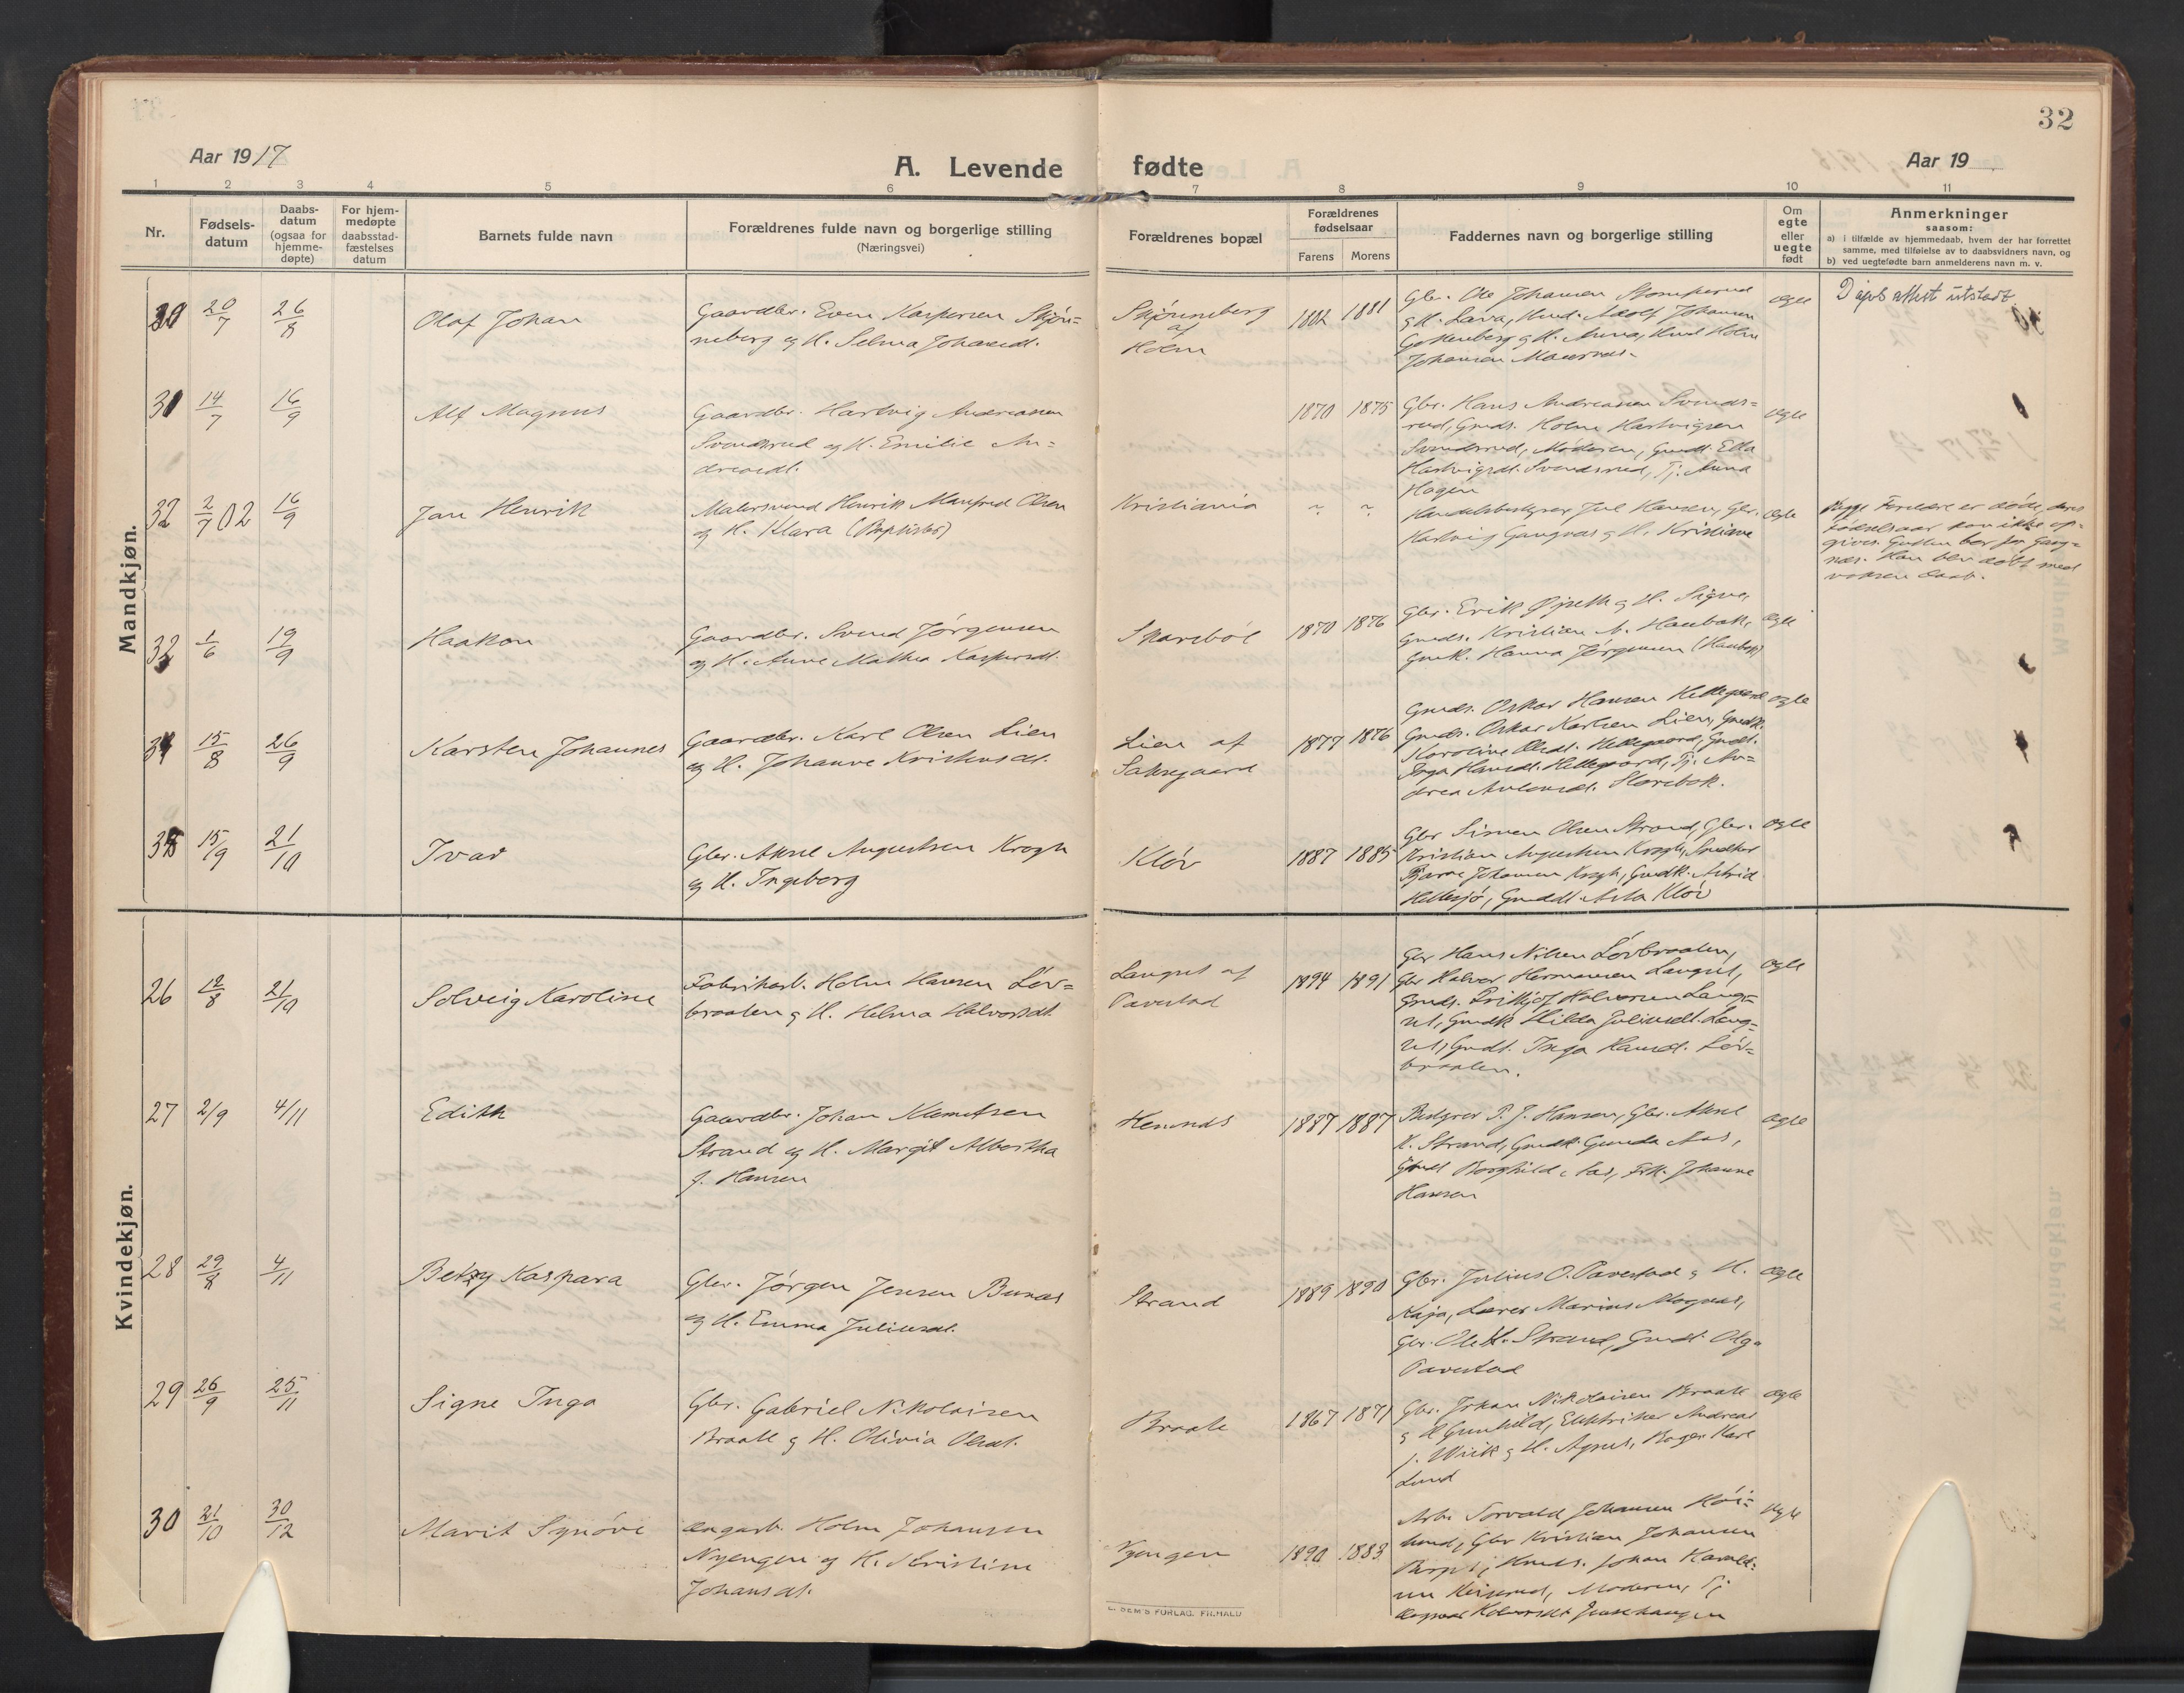 32
Aar 1917
A. Levende fødte
Aar 19
1 2 3 4 5 6 7 8 9 10 11
Nr.
Fødsels-
datum
Daabs-
datum
(ogsaa for
hjemme-
døpte)
For hjem-
medøpte
daabsstad-
fæstelses
datum
Barnets fulde navn
Forældrenes fulde navn og borgerlige stilling
(Næringsvei)
Forældrenes bopæl
Forældrenes
fødselsaar
Farens Morens
Faddernes navn og borgerlige stilling
Om
egte
eller
uegte
født
Anmerkninger
saasom:
a) i tilfælde av hjemmedaab, hvem der har forrettet
samme, med tilføielse av to daabsvidners navn, og
b) ved uegtefødte barn anmelderens navn m. v.
Mandkjøn.
30 20/7 26/8
Olaf Johan
Gaardbr. Even Kaspersen Skjøn-
neberg og H. Selma Johansdt.
Skjønneberg
af
Holm
1881
Gbr. Ole Johansen
Johansen
egte
Daabsattest utstedt
31 14/7 16/9
Alf Magnus
Gaardbr. Hartvig Andreassen
Svendsrud og H. Emilie An-
dreasdt.
1870 1875
Gbr. Hans Andreassen Svends-
rud, Gmds. Holm Hartvigsen
Svendsrud, Moderen, Gmdt. Ella
Hartvigsdt. Svendsrud, Tj. Anna
Hagen
egte
32 2/7 02 16/9
Jan Henrik
Malersvend Henrik Manfred Olsen
og H. Klara (Baptister)
Kristiania
~ ~
Handelsbestyrer Jul Hansen, Gbr.
Hartvig Gangnæs og H. Kristiane
egte
Begge Forældre er døde, deres
fødselsaar kan ikke op-
gives. Gutten bor paa Gang-
næs. Han blev døbt med
voksen daab.
33 1/6 19/9
Haakon
Gaardbr. Svend Jørgensen
og H. Anne Mathea Kaspersdt.
Skarebøl
1870 1876
Gbr. Erik Øjseth og H. Signe,
Gmds. Kristian A. Haubak,
Gmk. Hanna Jørgensen (Haubak)
egte
34 15/8 26/9
Karsten Johannes
Gaardbr. Karl Olsen Lien
og H. Johanne Kristensdt.
Lien af
Saksegaard
1877 1876
Gmds. Oskar Hansen Hellegaard
Gmds. Oskar Karlsen Lien, Gmdk.
Karoline Olsdt. Hellegaard, Gmdt.
Inga Hansdt. Hellegaard, Tj. An-
drea
egte
35 15/9 21/10
Ivar
Gbr. Aksel Augustsen Krogh
og H. Ingeborg
Kløv
1887 1885
Gbr Simen Olsen Strand, Gbr.
Kristian Augustsen Krogh, Snedker
Bjarne Johansen Krogh, Gmdk. Astrid
Hellesjø, Gmdt. Asta Kløv
egte
Kvindekjøn.
26 12/8 21/10
Solveig Karoline
Fabrikarb. Holm Hansen Løv-
braaten og H. Helma Halvorsdt.
Langset af
Tavestad
1894 1891
Gbr Hans Nilsen Løvbraaten,
Gbr Halvor Hermansen Langset,
Gmds. Fritjof Halvorsen Lang-
set, Gmdk Hilda Juliusdt. Lang-
set, Gmdt. Inga Hansdt. Løv-
braaten.
egte
27 2/9 4/11
Edith
Gaardbr. Johan Klemetsen
Strand og H. Margit Albertha
J. Hansen
Hemnæs
1887 1887
Bestyrer P. J. Hansen, Gbr. Aksel
K. Strand, Gmdk. Gunda Aas,
Gmdt Borghild Aas, Frk. Johanne
Hansen
egte
28 29/8 4/11
Betzy Kaspara
Gbr. Jørgen Jensen Bunæs
og H. Emma Juliusdt.
Strand
1889 1890
Gbr. Julius O. Tavestad og H.
Kaja, Lærer Marius Mognæs,
Gbr. Ole H. Strand, Gmdt. Olga
Tavestad
egte
29 26/9 25/11
Signe Inga
Gbr. Gabriel Nikolaisen
Braate og H. Olivia Olsdt.
Braate
1867 1871
Gbr. Johan Nikolaisen Braate
og H Gunhild, Elektriker Andreas
J. Wiik og H. Agnes, Bager Karl
Lund
egte
30 21/10 30/12
Marit Synøve
Holm Johansen
Nyengen og H. Kristine
Johansdt.
Nyengen
1890 1883
Arb. Torvald Johansen Høi-
lund, Gbr Kristian Johansen
Johan
Moderen, Tj
egte
E. SEM'S FORLAG. F.HALD